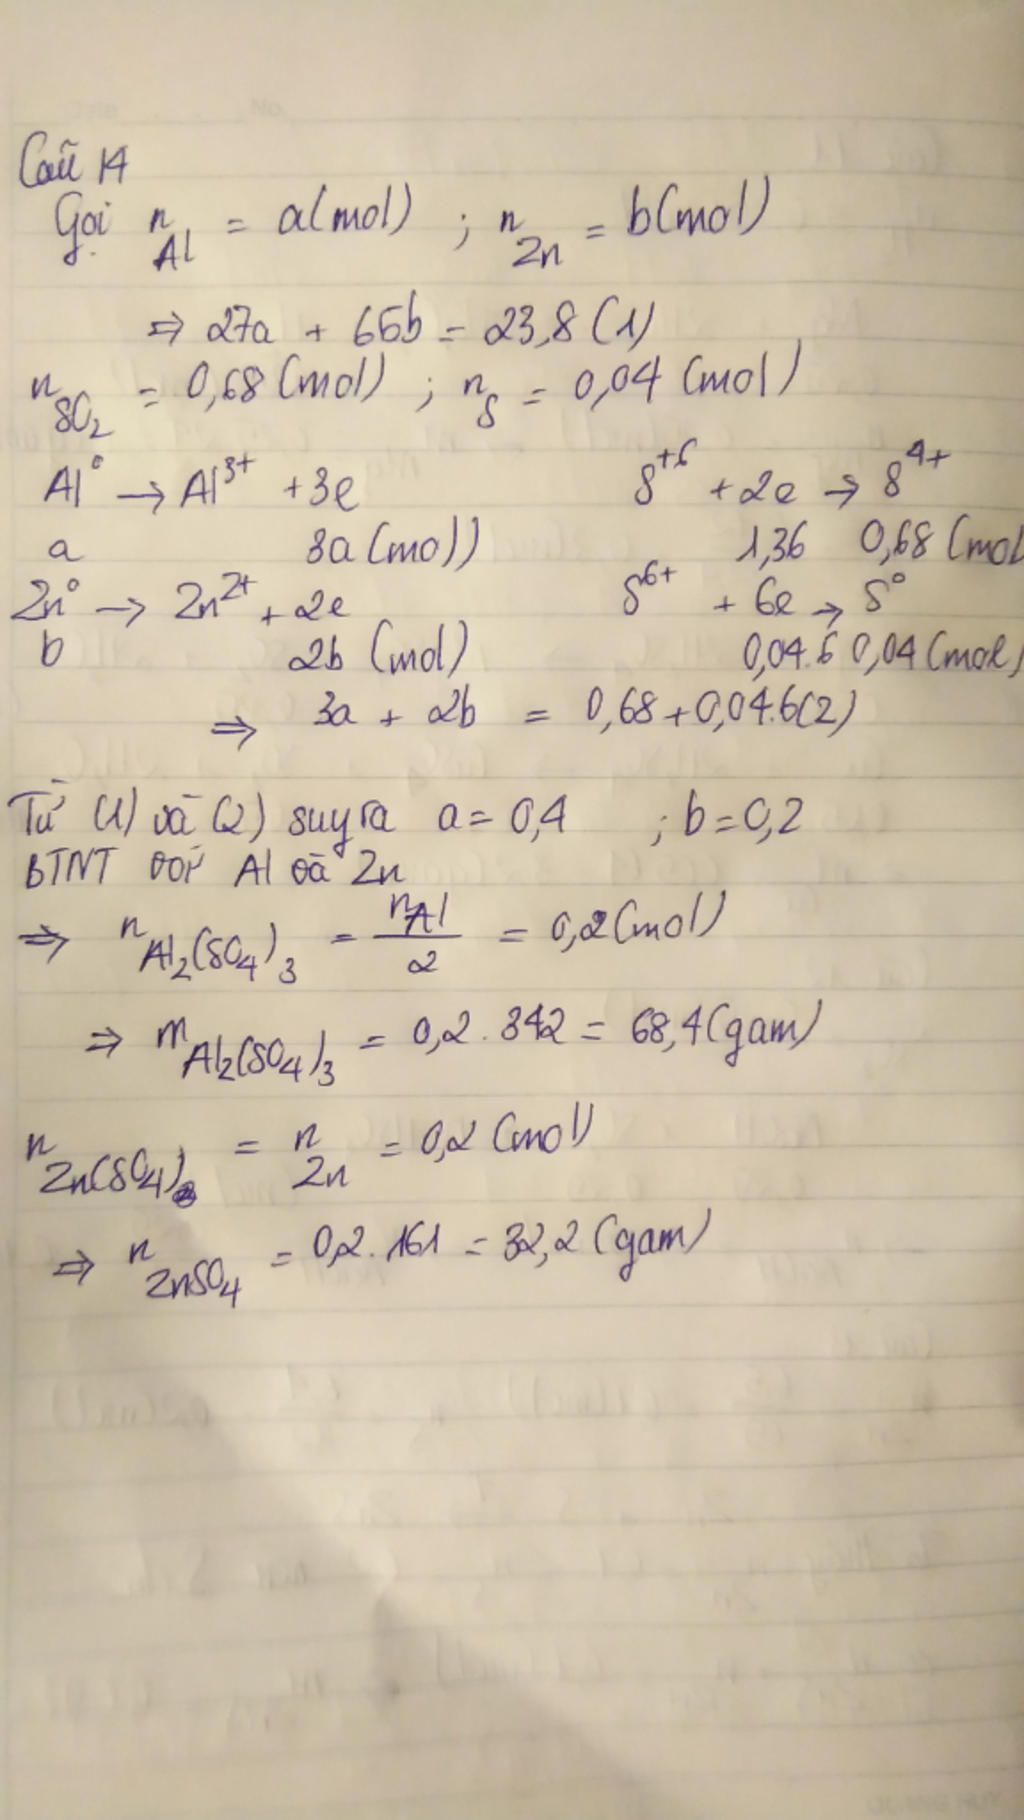 Câu 14
Gọi n Al = a(mol) ; n Zn = b(mol)
⇒ 27a + 65b = 23,8 (1)
n SO2 = 0,68 (mol) ; n S = 0,04 (mol)
Al⁰ → Al³⁺ + 3e S⁺⁶ + 2e → S⁴⁺
a 3a (mol)) 1,36 0,68 (mol
Zn⁰ → Zn²⁺ + 2e S⁶⁺ + 6e → S⁰
b 2b (mol) 0,04.6 0,04 (mol)
⇒ 3a + 2b = 0,68 + 0,04.6(2)
Từ (1) và (2) suy ra a = 0,4 ; b = 0,2
BTNT với Al và Zn
⇒ n Al2(SO4)3 = nAl/2 = 0,2 (mol)
⇒ m Al2(SO4)3 = 0,2 . 342 = 68,4 (gam)
n Zn(SO4) = n Zn = 0,2 (mol)
⇒ n ZnSO4 = 0,2 . 161 = 32,2 (gam)